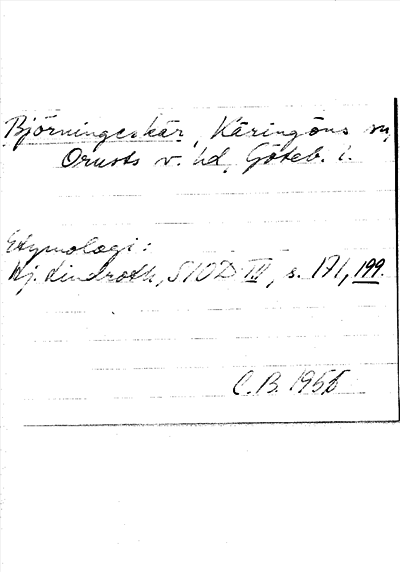 Björningeskär, Käringöns sn,
Orusts v. hd, Göteb. l.
Etymologi:
Hj. Lindroth, SIOD III, s. 171, 199.
C.B. 1955